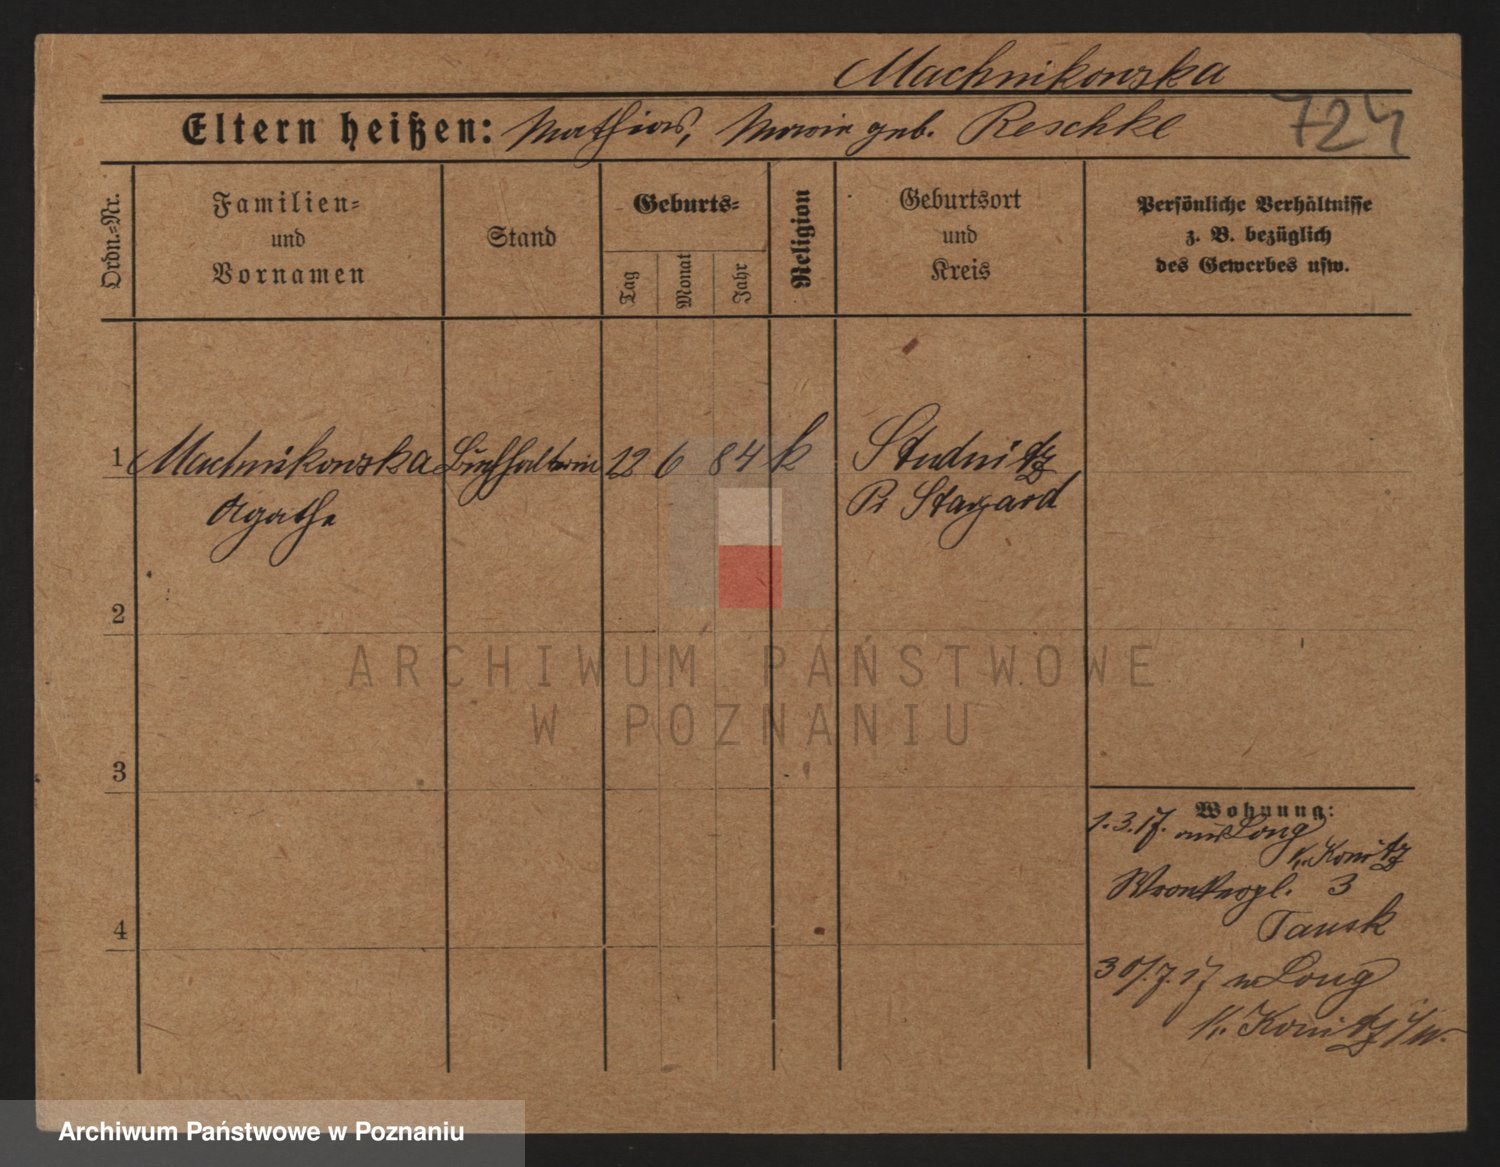 Machnikowska
Eltern heißen: Mathias, Marie geb. Reschke
724
Ordn.-Nr.
Familien-
und
Vornamen
Stand
Geburts-
Tag
Monat
Jahr
Religion
Geburtsort
und
Kreis
Persönliche Verhältnisse
z. B. bezüglich
des Gewerbes usw.
1 Machnikowska Buchhalterin 12 6 84 k Studnitz
Agathe
Pr Stargard
2
3
4
Wohnung:
1.3.17. aus Long
Kr. Konitz
Wronkerpl. 3
Tausk
30/7.17 n Long
Kr. Konitz i/W.
ARCHIWUM PAŃSTWOWE
W POZNANIU
Archiwum Państwowe w Poznaniu